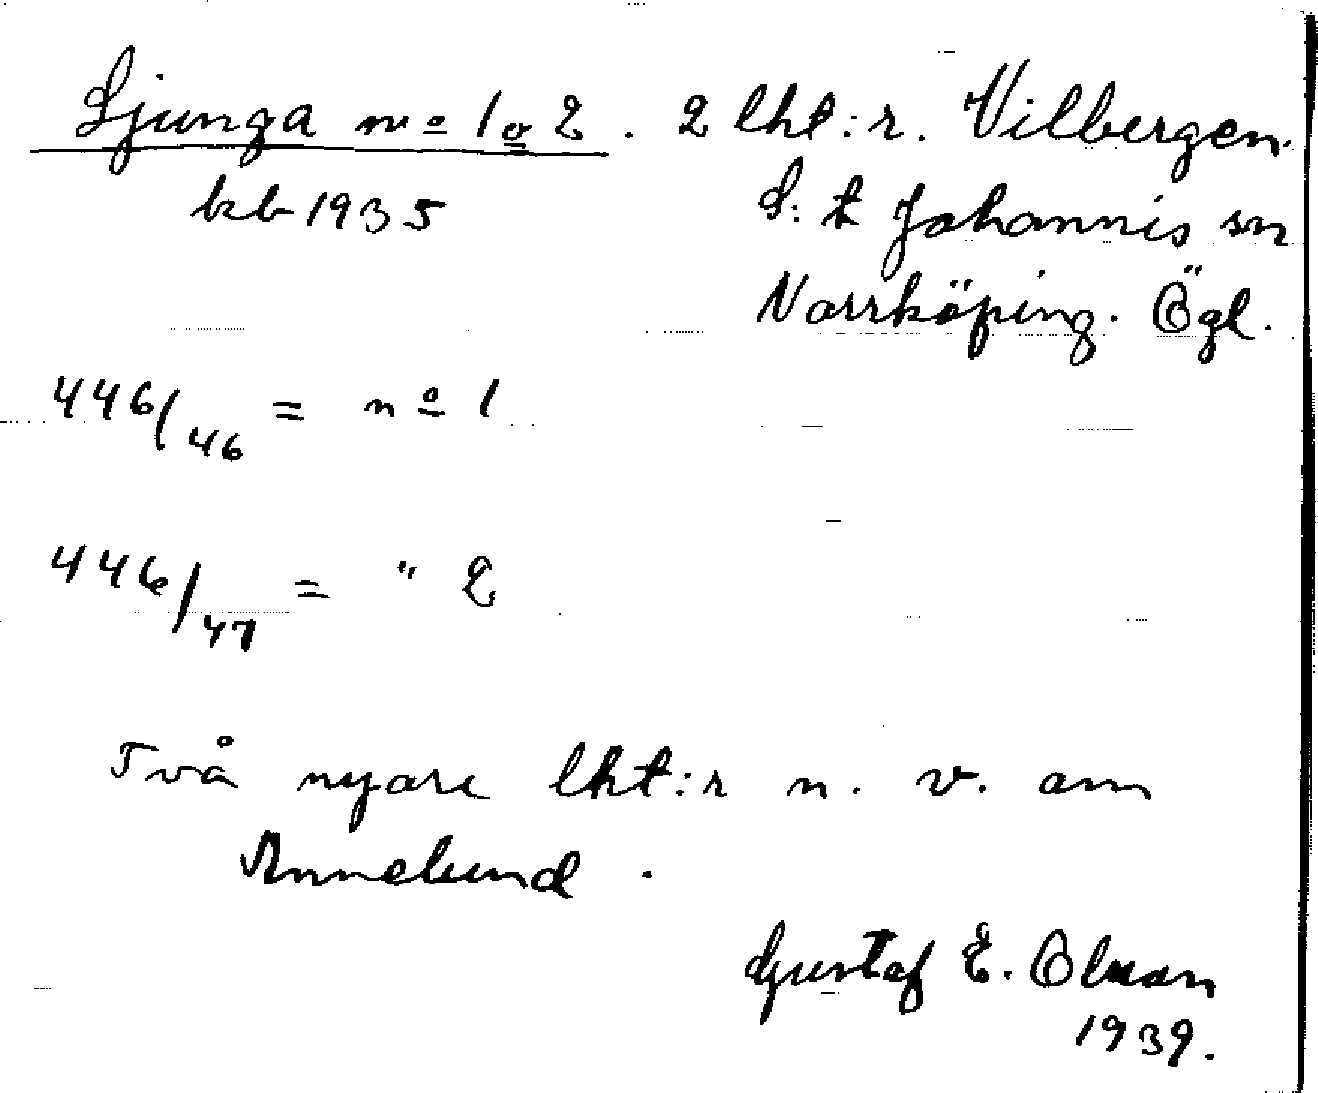 Ljunga nº 1 o 2. 2 lht:r. Vilbergen.
kb 1935
S:t Johannis sn
Norrköping. Ögl.
446/46 = nº 1
446/47 = " 2
Två nyare lht:r n. v. om
Annelund.
Gustaf E. Olsson
1939.